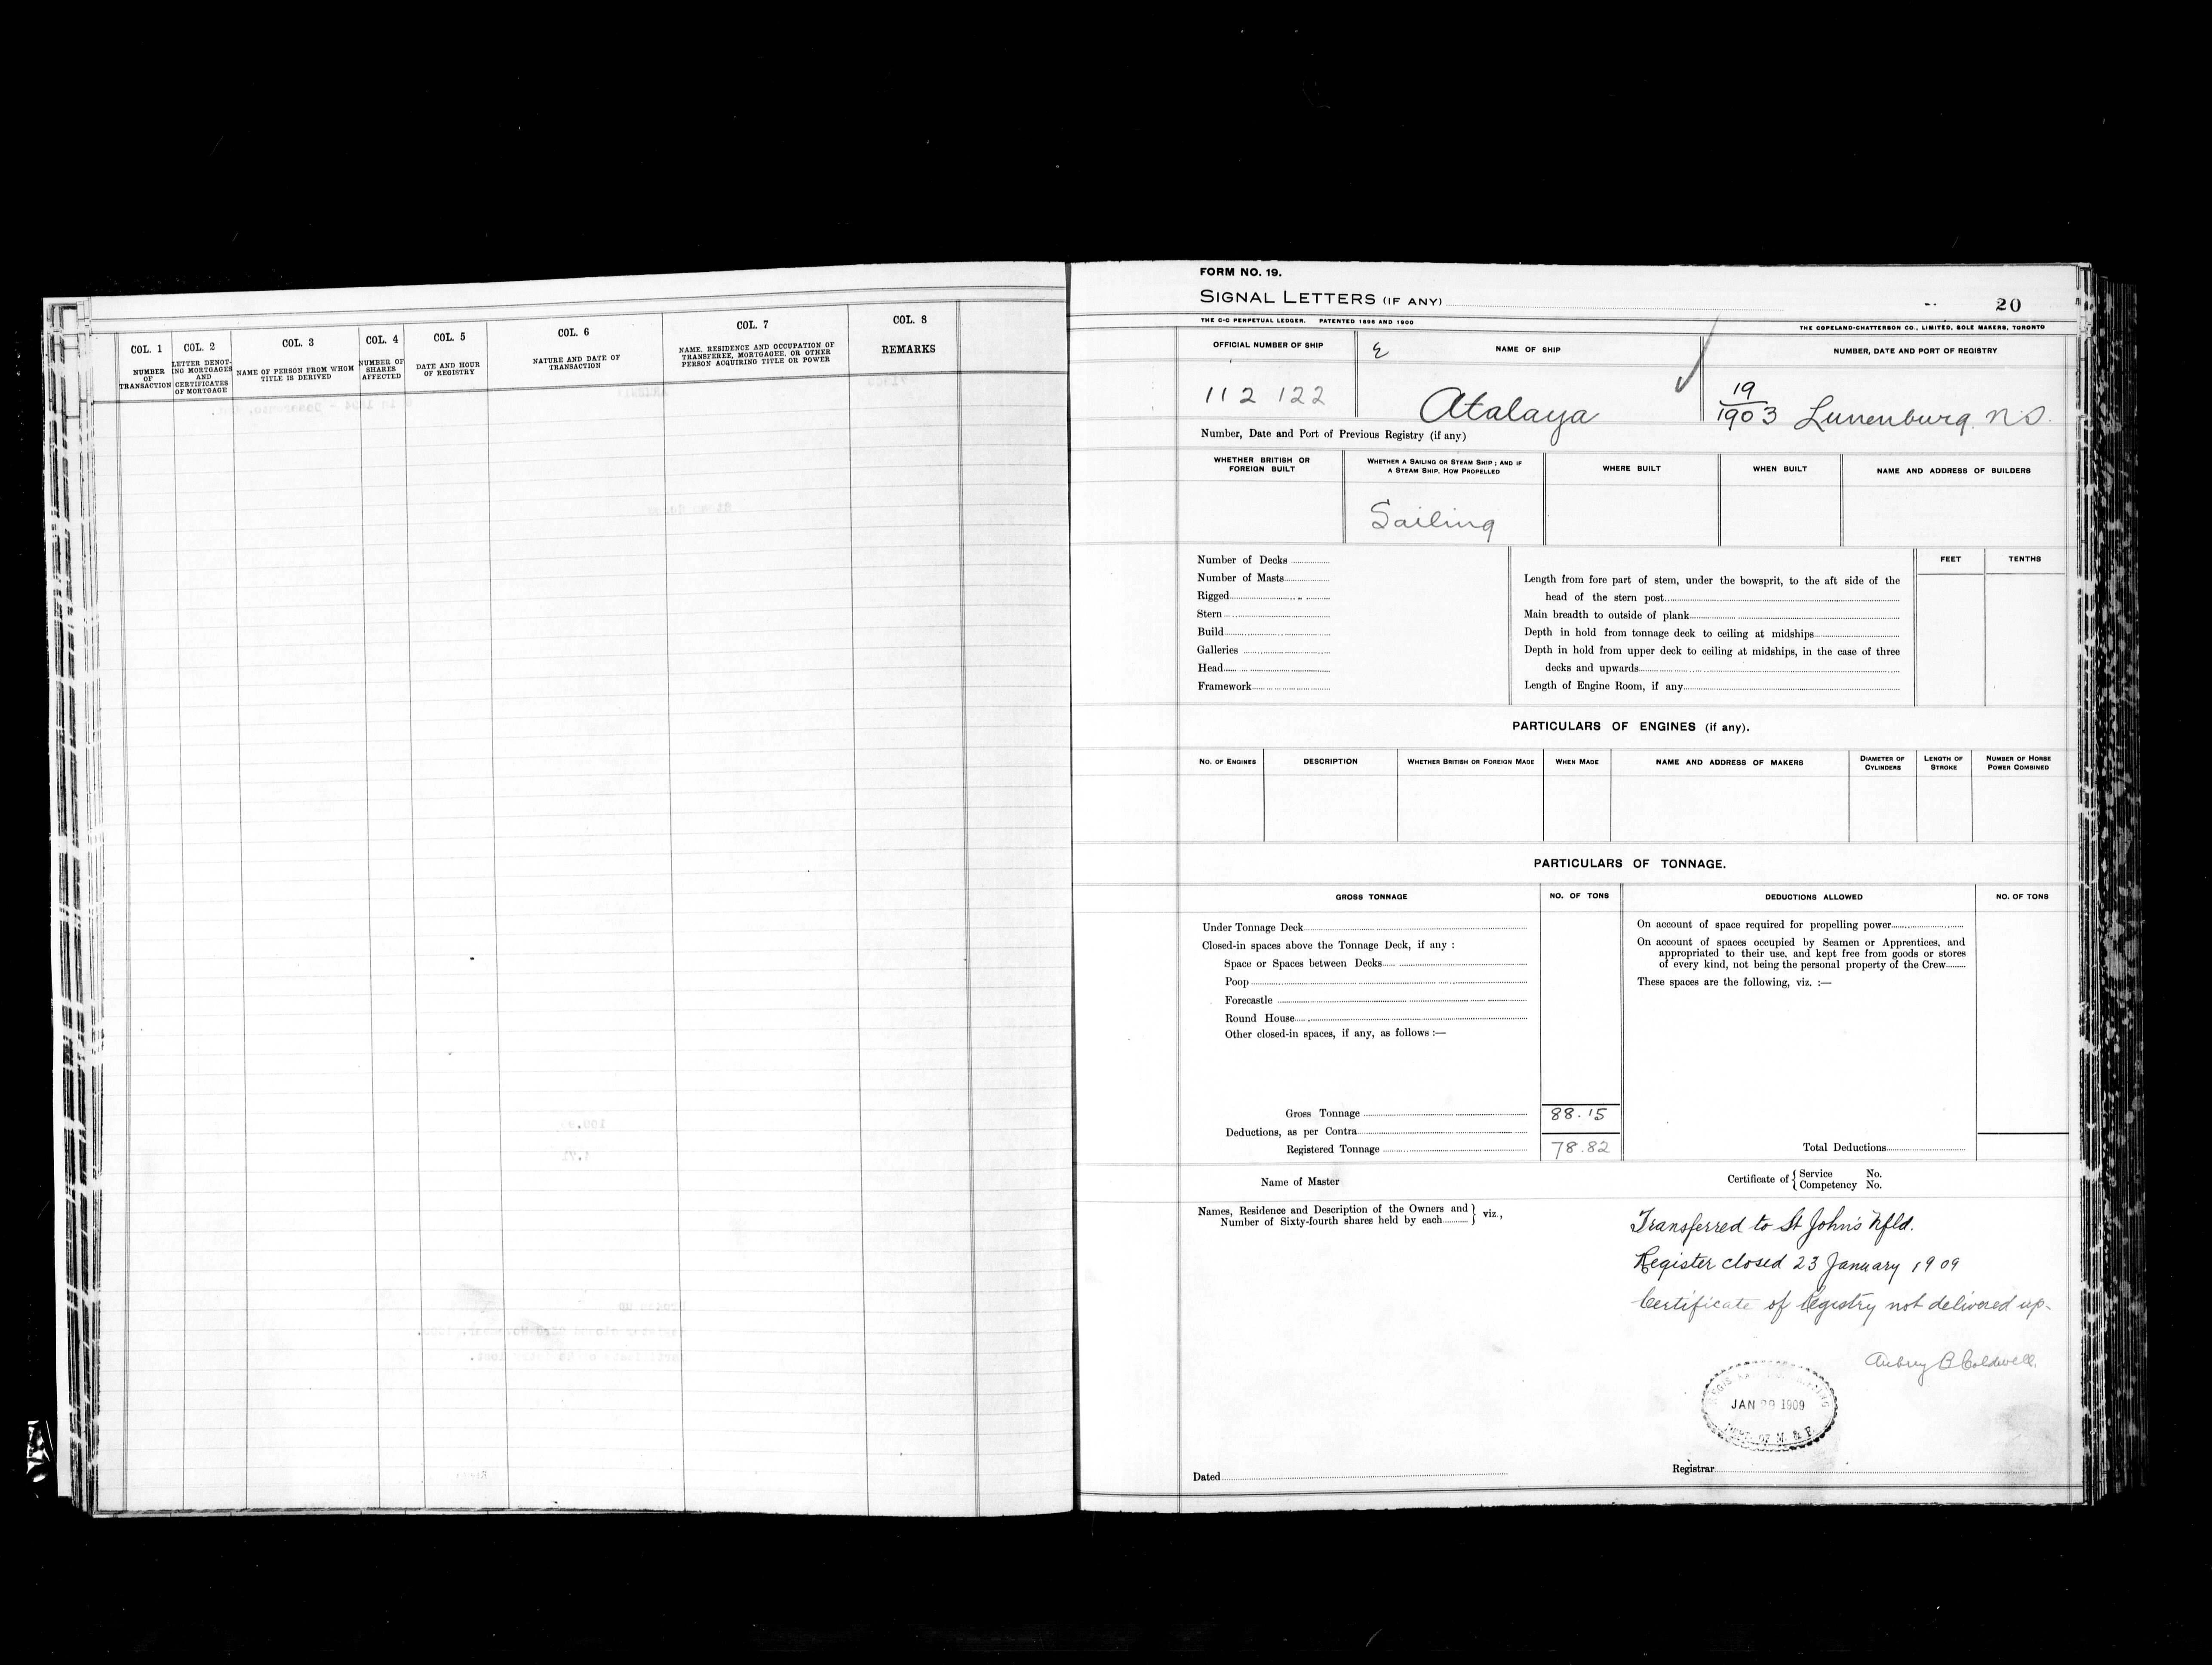 COL. 1
NUMBER OF TRANSACTION
COL. 2
LETTER DENOTING MORTGAGES AND CERTIFICATES OF MORTGAGE
COL. 3
NAME OF PERSON FROM WHOM TITLE IS DERIVED
COL. 4
NUMBER OF SHARES AFFECTED
COL. 5
DATE AND HOUR OF REGISTRY
COL. 6
NATURE AND DATE OF TRANSACTION
COL. 7
NAME, RESIDENCE AND OCCUPATION OF TRANSFEREE, MORTGAGEE, OR OTHER PERSON ACQUIRING TITLE OR POWER
COL. 8
REMARKS
FORM NO. 19.
SIGNAL LETTERS (IF ANY)
20
THE C-C PERPETUAL LEDGER. PATENTED 1896 AND 1900
THE COPELAND-CHATTERSON CO., LIMITED, SOLE MAKERS, TORONTO
OFFICIAL NUMBER OF SHIP
NAME OF SHIP
NUMBER, DATE AND PORT OF REGISTRY
112 122
Atalaya
19/1903 Lunenburg N.S.
Number, Date and Port of Previous Registry (if any)
WHETHER BRITISH OR FOREIGN BUILT
WHETHER A SAILING OR STEAM SHIP; AND IF A STEAM SHIP, HOW PROPELLED
WHERE BUILT
WHEN BUILT
NAME AND ADDRESS OF BUILDERS
Sailing
Number of Decks
Number of Masts
Rigged
Stern
Build
Galleries
Head
Framework
FEET
TENTHS
Length from fore part of stem, under the bowsprit, to the aft side of the
head of the stern post
Main breadth to outside of plank
Depth in hold from tonnage deck to ceiling at midships
Depth in hold from upper deck to ceiling at midships, in the case of three
decks and upwards
Length of Engine Room, if any
PARTICULARS OF ENGINES (if any).
NO. OF ENGINES
DESCRIPTION
WHETHER BRITISH OR FOREIGN MADE
WHEN MADE
NAME AND ADDRESS OF MAKERS
DIAMETER OF CYLINDERS
LENGTH OF STROKE
NUMBER OF HORSE POWER COMBINED
PARTICULARS OF TONNAGE.
GROSS TONNAGE
NO. OF TONS
DEDUCTIONS ALLOWED
NO. OF TONS
Under Tonnage Deck
Closed-in spaces above the Tonnage Deck, if any :
Space or Spaces between Decks
Poop
Forecastle
Round House
Other closed-in spaces, if any, as follows :—
On account of space required for propelling power
On account of spaces occupied by Seamen or Apprentices, and
appropriated to their use, and kept free from goods or stores
of every kind, not being the personal property of the Crew
These spaces are the following, viz. :—
Gross Tonnage 88.15
Deductions, as per Contra
Registered Tonnage 78.82
Total Deductions
Name of Master
Certificate of { Service No.
{ Competency No.
Names, Residence and Description of the Owners and } viz.,
Number of Sixty-fourth shares held by each }
Transferred to St John's Nfld.
Register closed 23 January 1909
Certificate of Registry not delivered up-
Aubrey B Coldwell.
JAN 1909
DEPT. OF M. & F.
Dated
Registrar